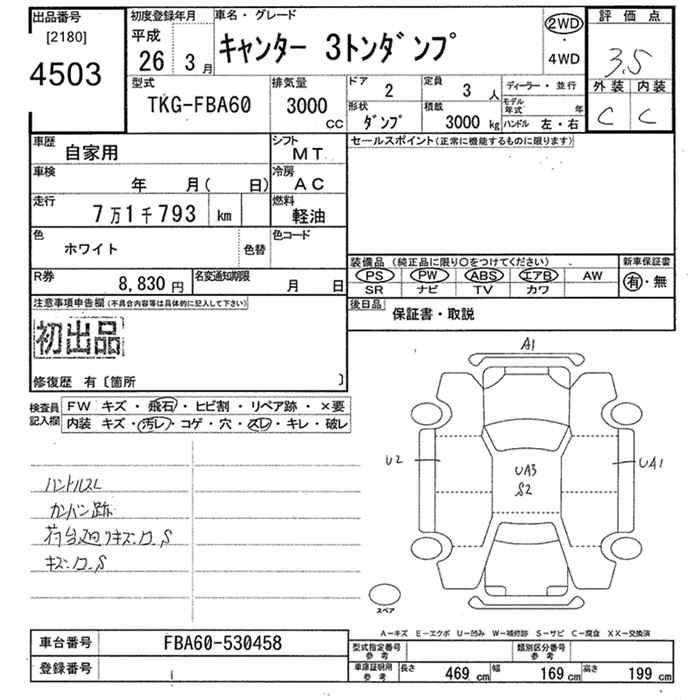 出品番号
[2180]
4503
初度登録年月
平成
26年 3月
車名・グレード
キャンター 3トンダンプ
2WD
・
4WD
評価点
3.5
外装 内装
C C
型式
TKG-FBA60
排気量
3000 CC
ドア
2
定員
3 人
ディーラー・並行
形状
ダンプ
積載
3000 kg
モデル年式 年
ハンドル 左・右
車歴
自家用
シフト
MT
車検
年 月( 日)
冷房
AC
走行
7万1千793 km
燃料
軽油
色
ホワイト
色替
色コード
R券
8,830円
名変通知期限
月 日
セールスポイント(正常に機能するものに限ります)
装備品 (純正品に限り○をつけてください)
新車保証書
PS PW ABS エアB AW
SR ナビ TV カワ
有・無
後日品
保証書・取説
注意事項申告欄(不具合内容等は具体的に記入して下さい)
初出品
修復歴 有〔箇所 〕
検査員記入欄
FW キズ・飛石・ヒビ割・リペア跡・×要
内装 キズ・汚レ・コゲ・穴・スレ・キレ・破レ
ハンドルスレ
カンバン跡
キズ、凹、S
A1
U2
UA3
S2
UA1
スペア
A-キズ E-エクボ U-凹み W-補修跡 S-サビ C-腐食 XX-交換済
車台番号
FBA60-530458
登録番号
型式指定番号
参考
類別区分番号
参考
車庫証明用
参考
長さ 469 cm 幅 169 cm 高さ 199 cm